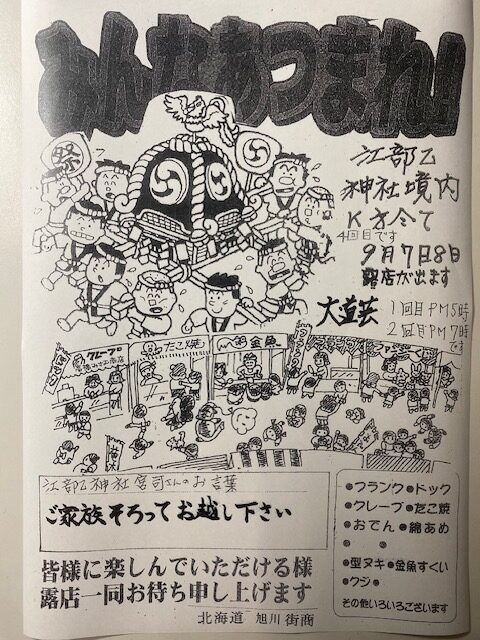 みんなあつまれ!!
祭
江部乙
神社境内
にて
4回目です
9月7日8日
露店が出ます
大道芸
1回目PM5時
2回目PM7時
です
クレープ
たこ焼
金魚
江部乙神社宮司さんのお言葉
ご家族そろってお越し下さい
●フランク●ドック
●クレープ●たこ焼
●おでん●綿あめ
●型ヌキ●金魚すくい
●クジ●
その他いろいろございます
皆様に楽しんでいただける様
露店一同お待ち申し上げます
北海道 旭川街商